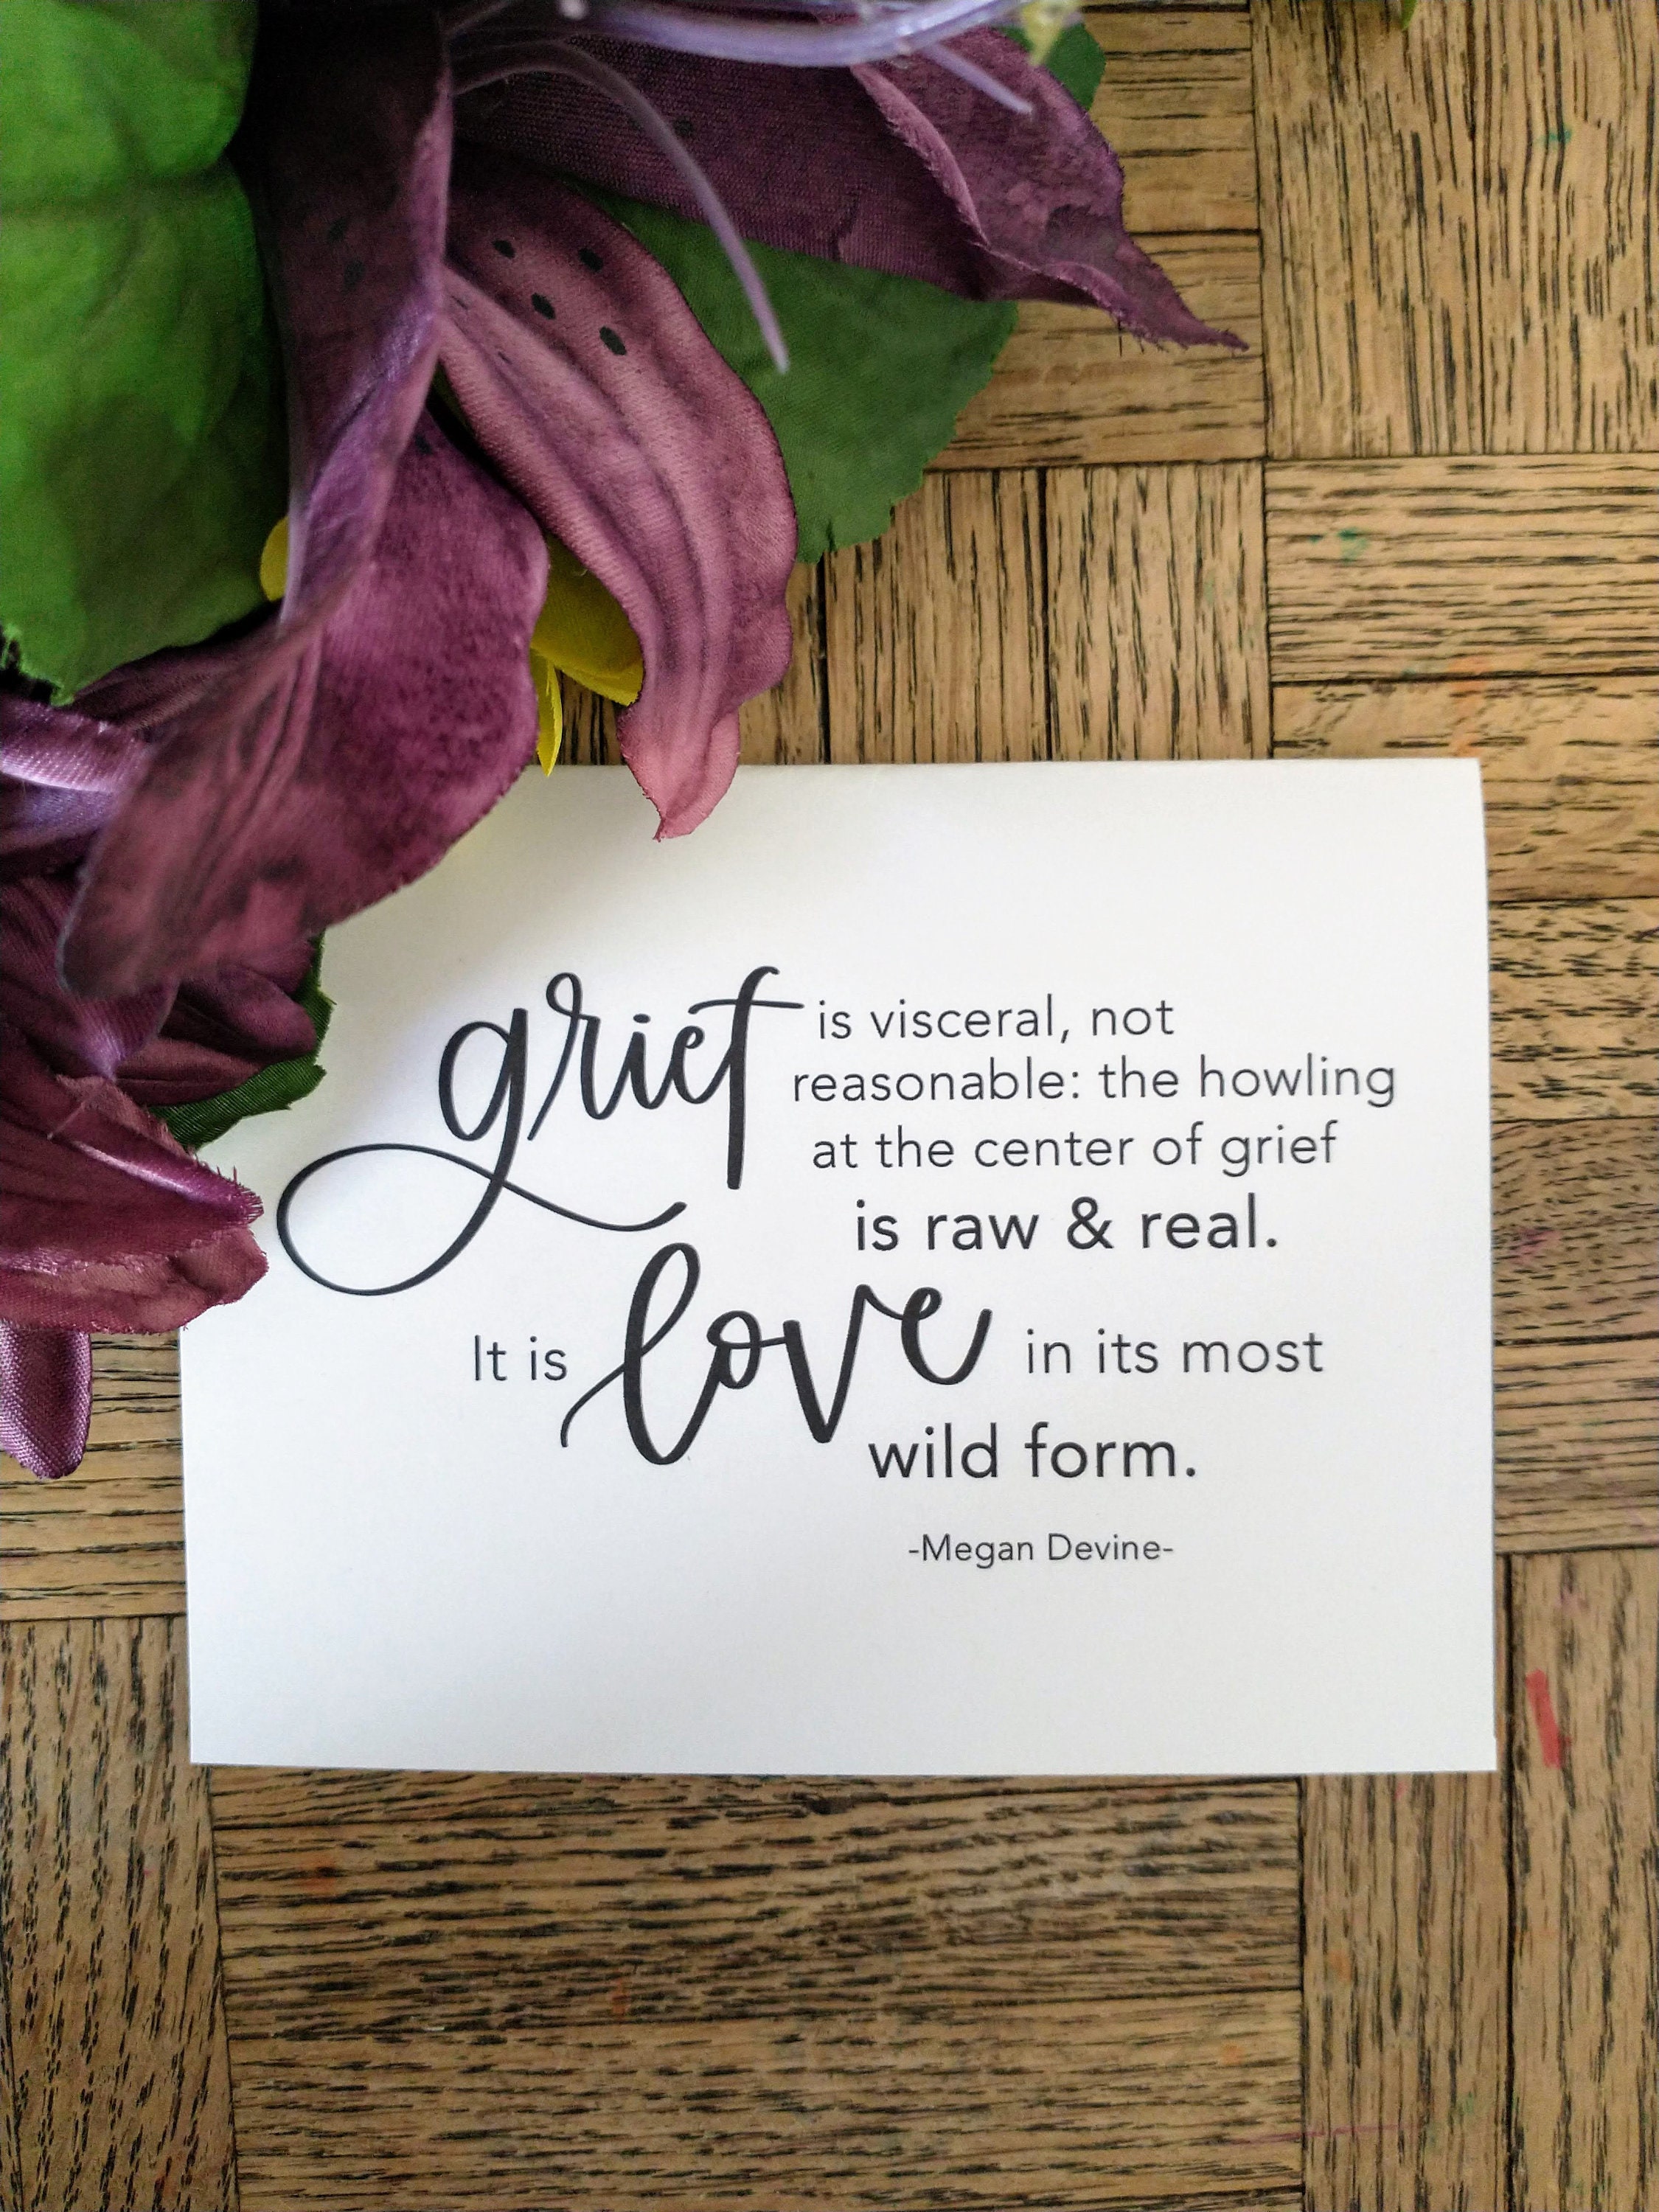 grief is visceral, not
reasonable: the howling
at the center of grief
is raw & real.
It is love in its most
wild form.
-Megan Devine-